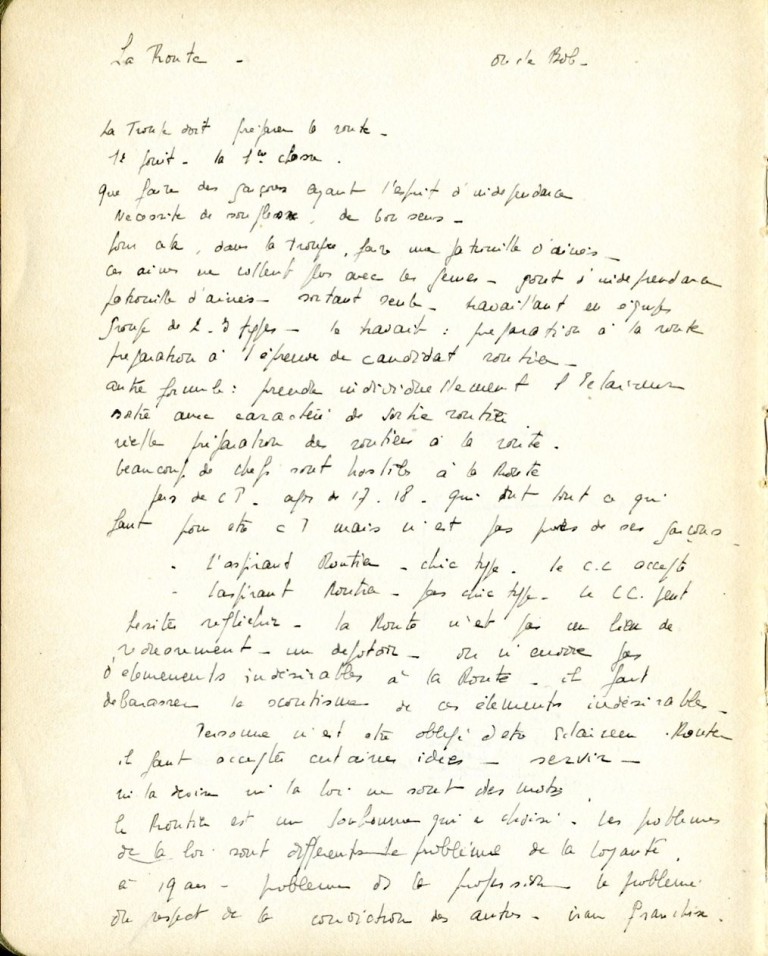 La Route -
La Troupe doit préparer la route -
1e point - la 1ère classe.
que faire des garçons ayant l'esprit d'independance
Necessité de souplesse, de bon sens -
pour cela, dans la troupe, faire une patrouille d'ainés -
ces ainés ne collent plus avec les jeunes - gout d'independance
patrouille d'ainés - sortant seule - travaillant en équipe
Groupe de 2-3 types - le travail : preparation à la route
preparation à l'épreuve de candidat routier -
autre formule : prendre individuellement l'Eclaireur
avec caractère de sortie routière
réelle préparation des routiers à la route.
beaucoup de chefs sont hostiles à la Route
pas de CT. agés de 17.18. qui ont tout ce qui
faut pour etre CT mais n'est pas près de ses garçons -
- L'aspirant Routier - chic type. le C.C accepte
- L'aspirant Routier - pas chic type - le CC. peut
hesiter reflechir - la Route n'est pas un lieu de
- un depotoir - on n'envoie pas
d'elements indésirables à la Route - il faut
debarasser le scoutisme de ces éléments indésirables -
Personne n'est obligé d'etre Eclaireur. Routier
il faut accepter certaines idées - servir -
ni la devise ni la loi ne sont des mots
le Routier est un qui a choisi. Les problemes
de la loi sont differents - le problème de la loyauté.
à 19 ans - probleme de la profession le probleme
du respect de la conviction des autres -